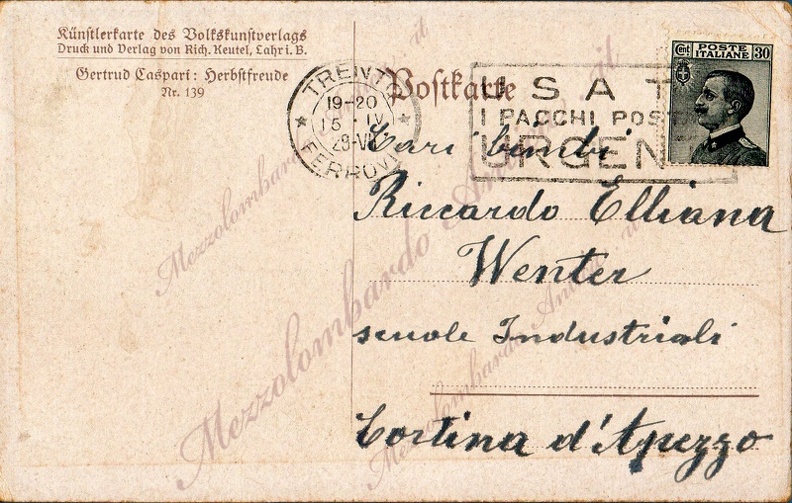 Künstlerkarte des Volkskunstverlags
Druck und Verlag von Rich. Keutel, Lahr i. B.
Gertrud Caspari: Herbstfreude
Nr. 139
Postkarte
TRENTO
19-20
15 · IV
29-VII
FERROVIA
USAT
I PACCHI POST
URGEN
Cent POSTE ITALIANE 30
Cari bimbi
Riccardo Elliana
Wenter
scuole Industriali
Cortina d'Apezzo
Mezzolombardo
Mezzolombardo
Mezzolombardo
it
it